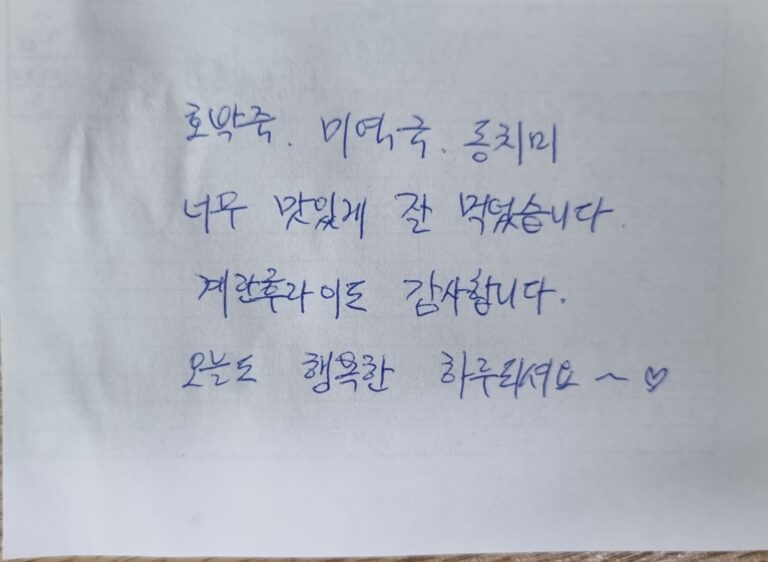 호박죽. 미역국. 동치미
너무 맛있게 잘 먹었습니다.
계란후라이도 감사합니다.
오늘도 행복한 하루되셔요~♡